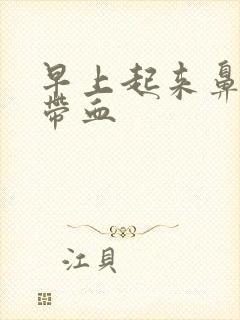 早上起来鼻
带血
江貝